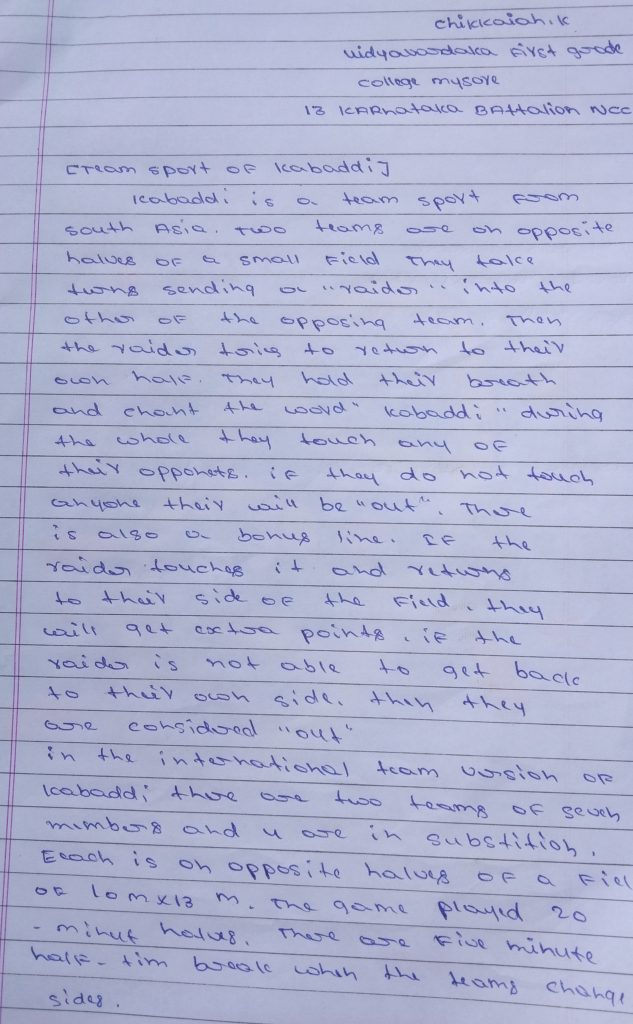 chikkaiah.k
vidyavardaka First grade
college mysore
13 KARnataka BAttalion NCC
[Team sport of kabaddi]
kabaddi is a team sport from
south Asia. two teams are on opposite
halves of a small Field They take
turns sending a "raider" into the
other of the opposing team. Then
the raider tries to return to their
own half. They hold their breath
and chant the word "kabaddi" during
the whole they touch any of
their opponets. if they do not touch
anyone their will be "out". There
is also a bonus line. If the
raider touches it and returns
to their side of the Field, they
will get extra points, if the
raider is not able to get back
to their own side. then they
are considered "out"
in the international team version of
kabaddi there are two teams of seven
mimbers and 4 are in substition.
Eeach is on opposite halves of a Fiel
of 10m x13 m. The game played 20
- minut halves. There are Five minute
half- tim break when the teams change
sides.